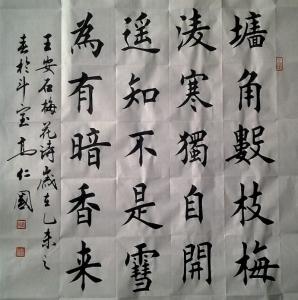 墻角數枝梅
淩寒獨自開
遥知不是雪
為有暗香来
王安石梅花诗歲在乙未之
春於斗室高仁國